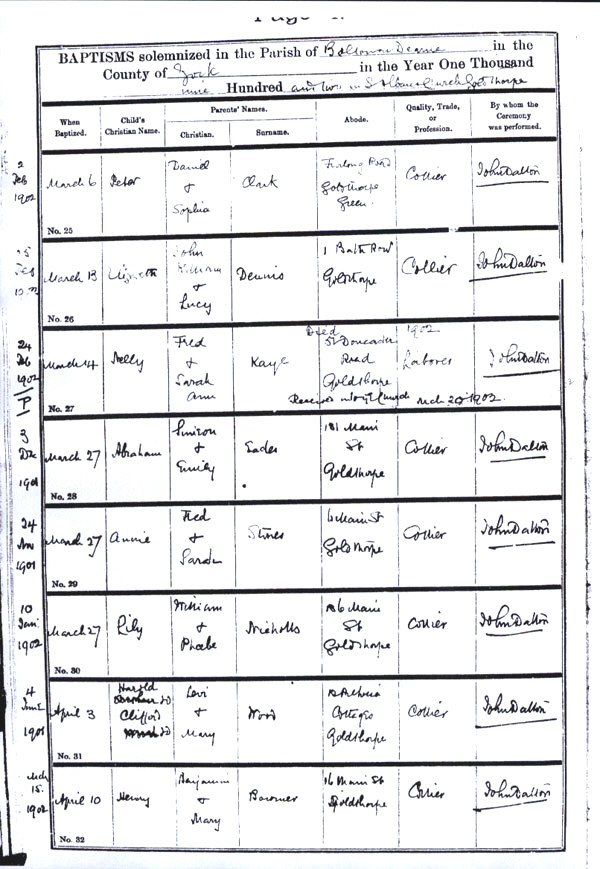 BAPTISMS solemnized in the Parish of Bolton on Dearne in the
County of York in the Year One Thousand
nine Hundred and two in St Albans Church Goldthorpe
When Baptized.
Child's Christian Name.
Parents' Names.
Christian.
Surname.
Abode.
Quality, Trade, or Profession.
By whom the Ceremony was performed.
2 Feb 1902
March 6
Peter
Daniel & Sophia
Clark
Furlong Road Goldthorpe Green
Collier
John Dalton
No. 25
March 13
John William & Lucy
Dennis
1 Bath Row Goldthorpe
Collier
John Dalton
No. 26
24 Feb 1902
P
March 14
Nelly
Fred & Sarah Ann
Kaye
Died 1902
51 Doncaster Road Goldthorpe
Labourer
John Dalton
Received into Church Mch 1902.
No. 27
3 Dec 1901
March 27
Abraham
Simeon & Emily
Eades
181 Main St Goldthorpe
Collier
John Dalton
No. 28
24 1901
March 27
Annie
Fred & Sarah
Stones
6 Main St Goldthorpe
Collier
John Dalton
No. 29
10 Jan 1902
March 27
Lily
William & Phoebe
Nicholls
186 Main St Goldthorpe
Collier
John Dalton
No. 30
4 June 1901
April 3
Harold
Clifford
Levi & Mary
Wood
Cottages Goldthorpe
Collier
John Dalton
No. 31
Mch 15. 1902
April 10
Henry
Benjamin & Mary
16 Main St Goldthorpe
Collier
John Dalton
No. 32